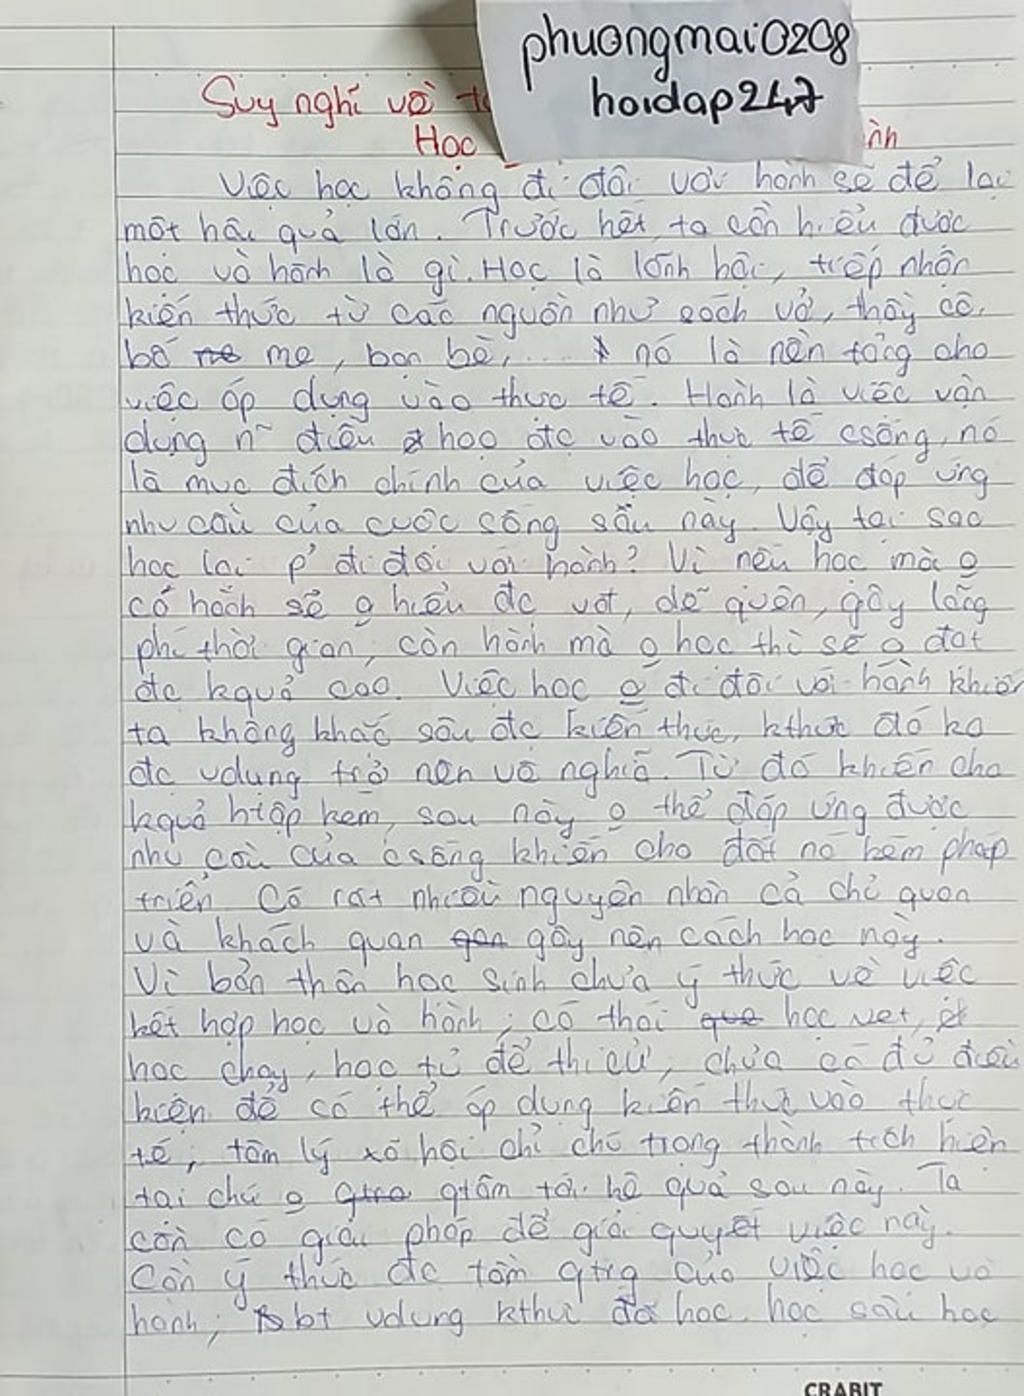 phuongmai0208
hoidap247
Suy nghĩ về
Học
Việc học không đi đôi với hành sẽ để lại
một hậu quả lớn. Trước hết, ta cần hiểu được
học và hành là gì. Học là lĩnh hội, tiếp nhận
kiến thức từ các nguồn như sách vở, thầy cô,
bố mẹ, bạn bè,... nó là nền tảng cho
việc áp dụng vào thực tế. Hành là việc vận
dụng n~ điều học đc vào thực tế csống, nó
là mục đích chính của việc học, để đáp ứng
nhu cầu của cuộc sống sau này. Vậy tại sao
học lại p' đi đôi với hành? Vì nếu học mà o
có hành sẽ o hiểu đc vđ, dễ quên, gây lãng
phí thời gian; còn hành mà o học thì sẽ o đạt
đc kquả cao. Việc học o đi đôi với hành khiến
ta không khắc sâu đc kiến thức, kthức đó ko
đc vdụng trở nên vô nghĩa. Từ đó khiến cho
kquả htập kém, sau này o thể đáp ứng được
nhu cầu của csống khiến cho đất nc kém pháp
triển. Có rất nhiều nguyên nhân cả chủ quan
và khách quan gây nên cách học này.
Vì bản thân học sinh chưa ý thức về việc
kết hợp học và hành; có thói học vẹt,
học chay, học tủ để thi cử; chưa có đủ điều
kiện để có thể áp dụng kiến thức vào thực
tế; tâm lý xã hội chỉ chú trọng thành tích hiện
tại chứ o qtâm tới hệ quả sau này. Ta
cần có giải pháp để giải quyết việc này.
Cần ý thức đc tầm qtrg của việc học và
hành; bt vdụng kthức đã học, học sâu học
CRABIT